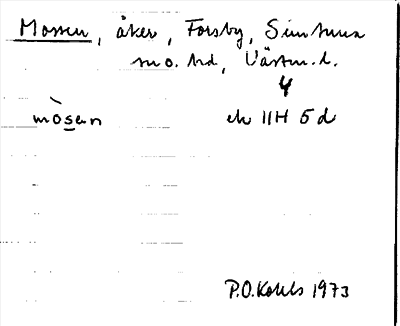 Mossen, åker, Forsby, Simtuna
sn o. hd, Västm. l.
4
mòsen ek 11H 5d
P.O. Kohls 1973